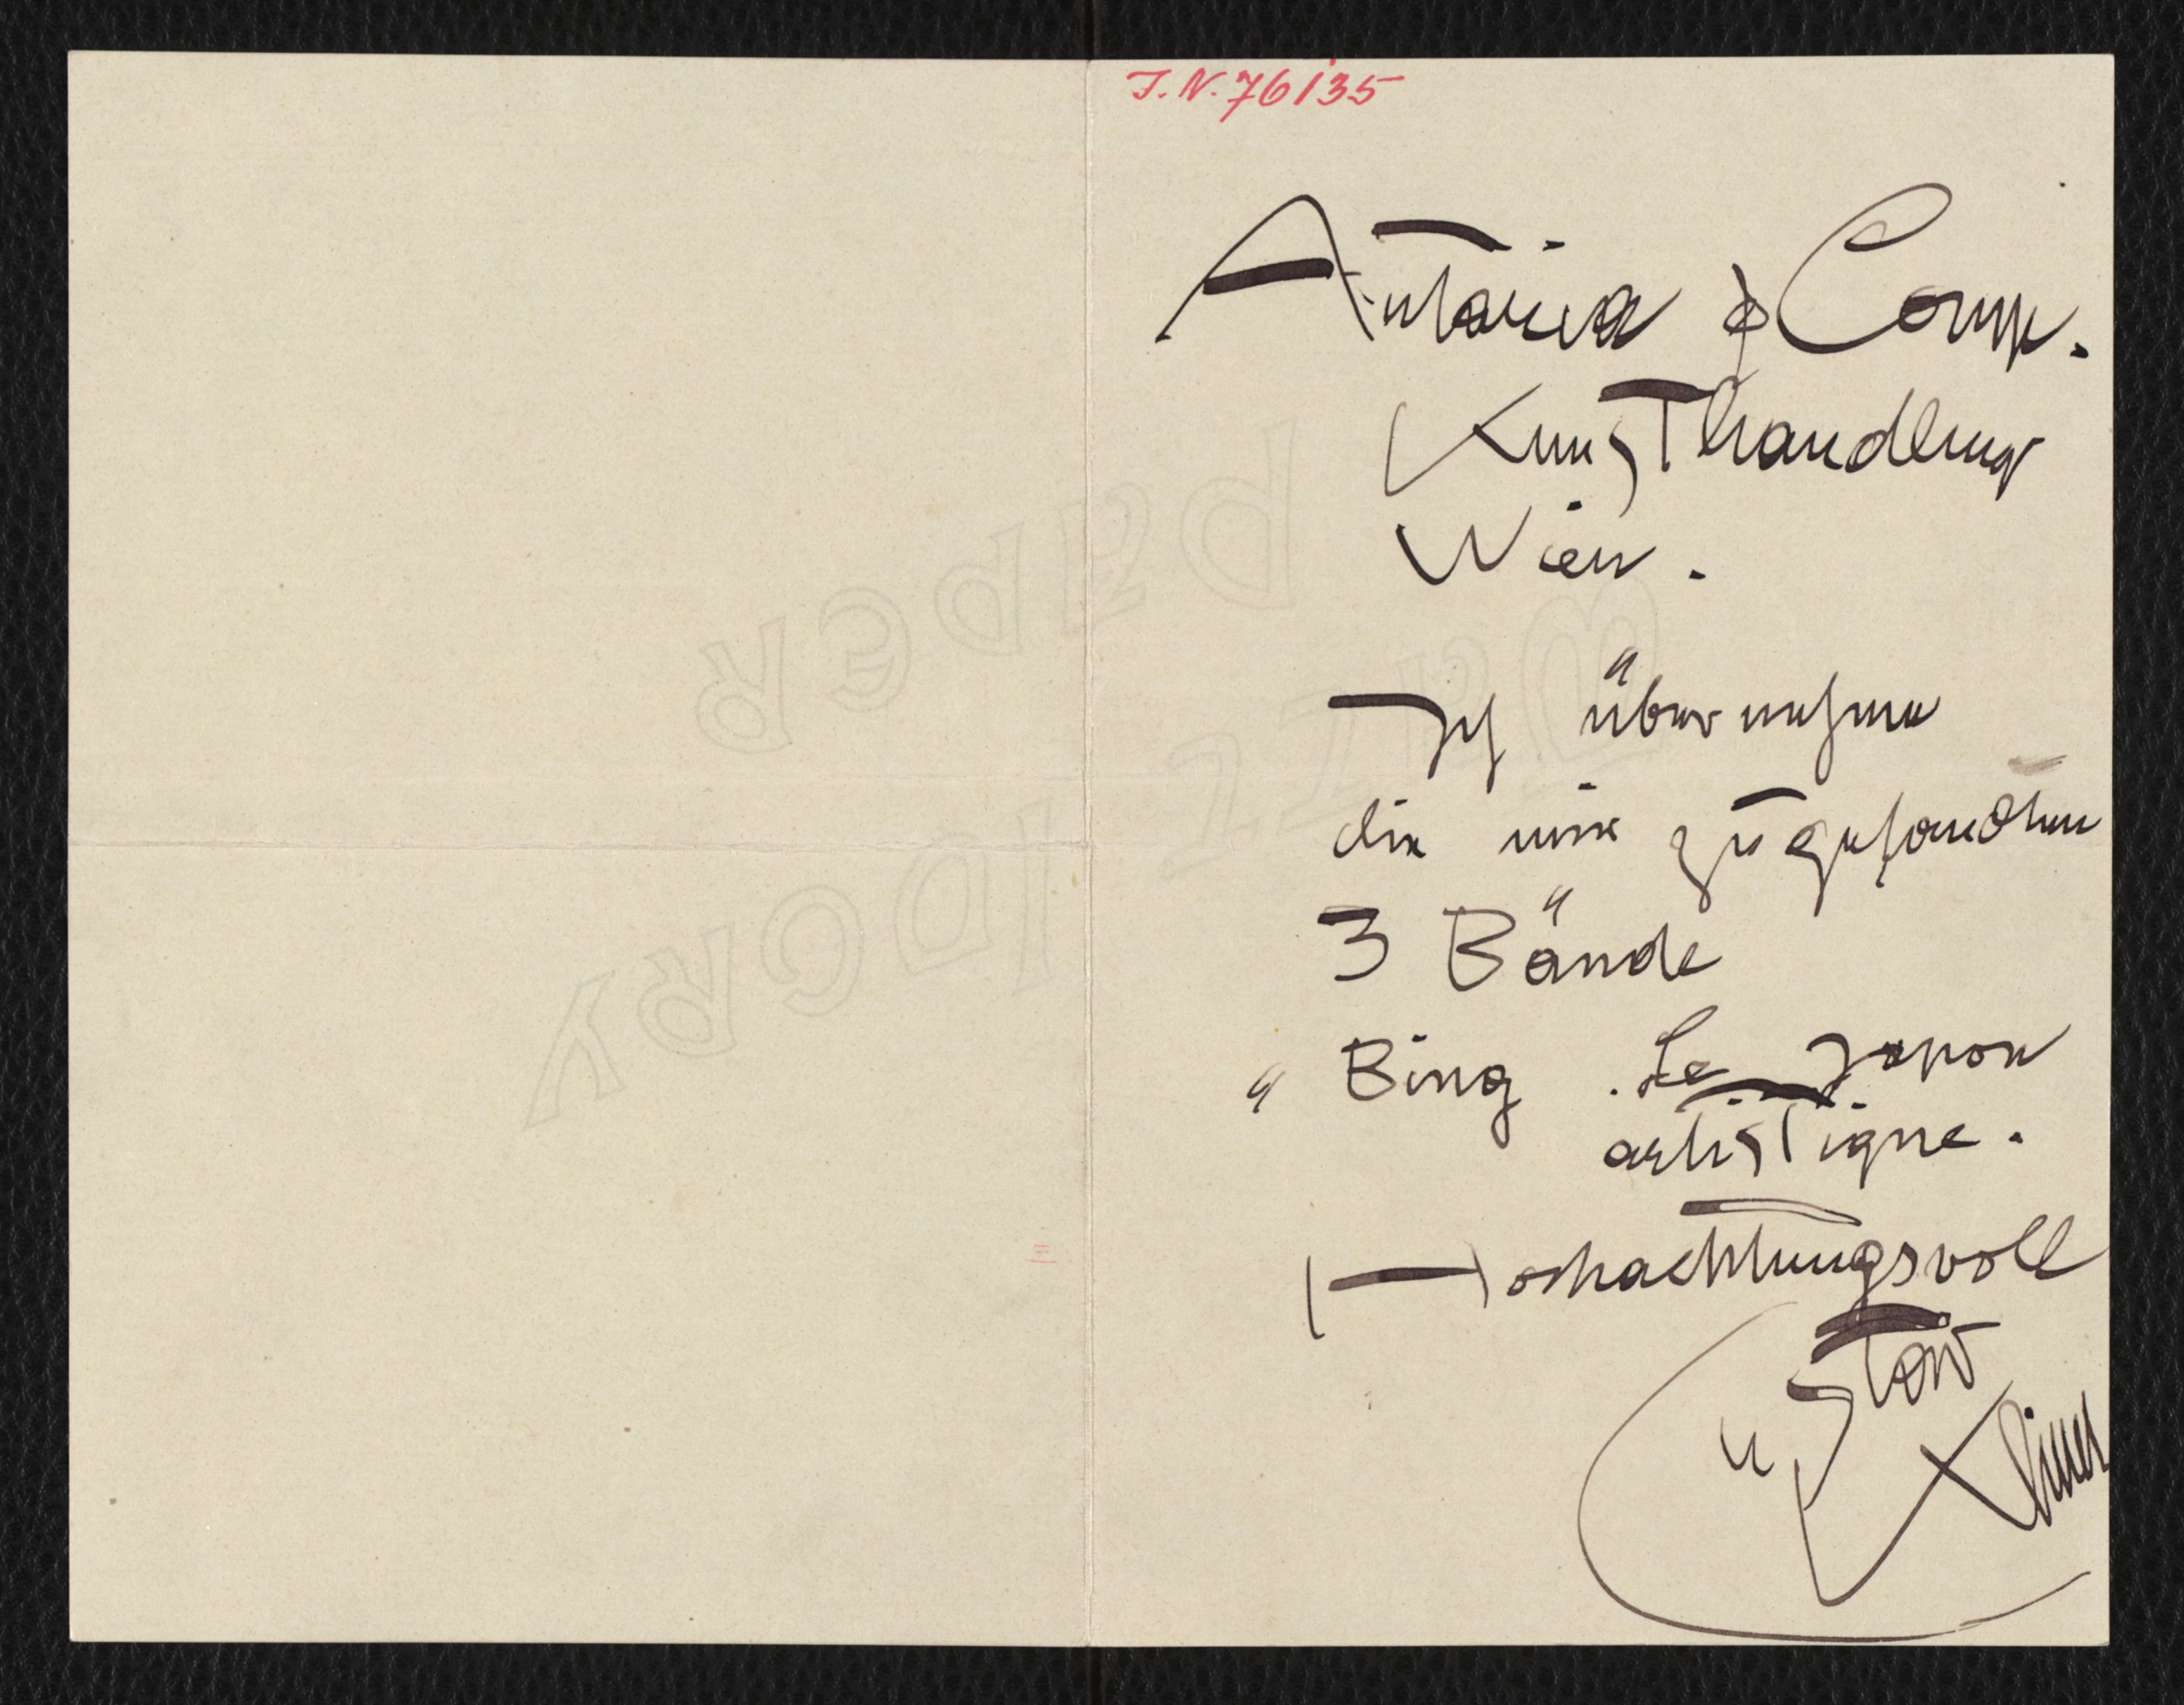 J.N. 76135
Artaria & Comp.
Kunsthandlung
Wien.
Ich übernehme
die mir zugesandten
3 Bände
„ Bing . Le Japon
artistique.
Hochachtungsvoll
Gustav
Klimt
MILL
PAPER
IDCRY